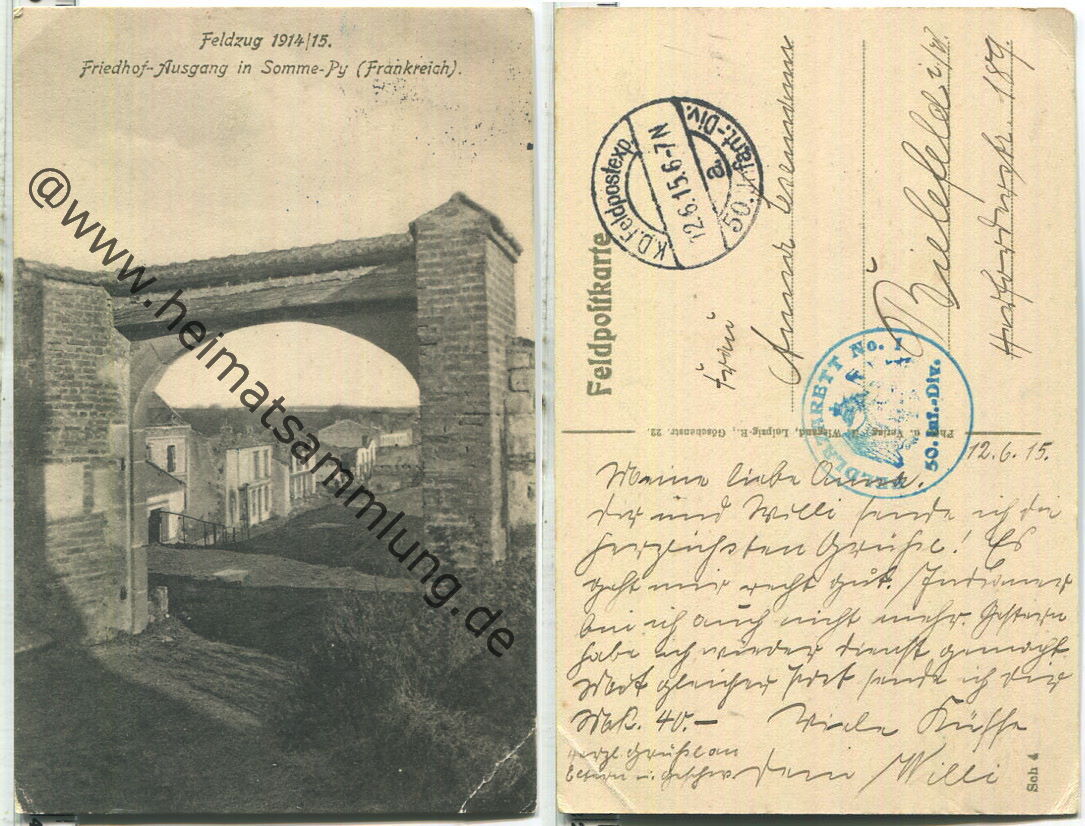 Feldzug 1914/15.
Friedhof-Ausgang in Somme-Py (Frankreich).
@www.heimatsammlung.de
Feldpostkarte
K.D.Feldpostexp.
12.6.15.6-7N
a.
50. Infant.-Div.
Frau
Anna
Bielefeld i/W.
189
FELDLAZARETT No. 1
50. Inf.-Div.
Verlag Wiegand, Leipzig-R., Göschenstr. 22.
12.6.15.
Meine liebe Anna.
Dir und Willi sende ich die
herzlichsten Grüße! Es
geht mir recht gut.
bin ich auch nicht mehr. Gestern
habe ich wieder Dienst gemacht.
Mit gleicher Post sende ich dir
Mk. 40.— Viele Küsse
Herzl. Grüße an
Eltern u. Geschw Dein Willi
Sch 4